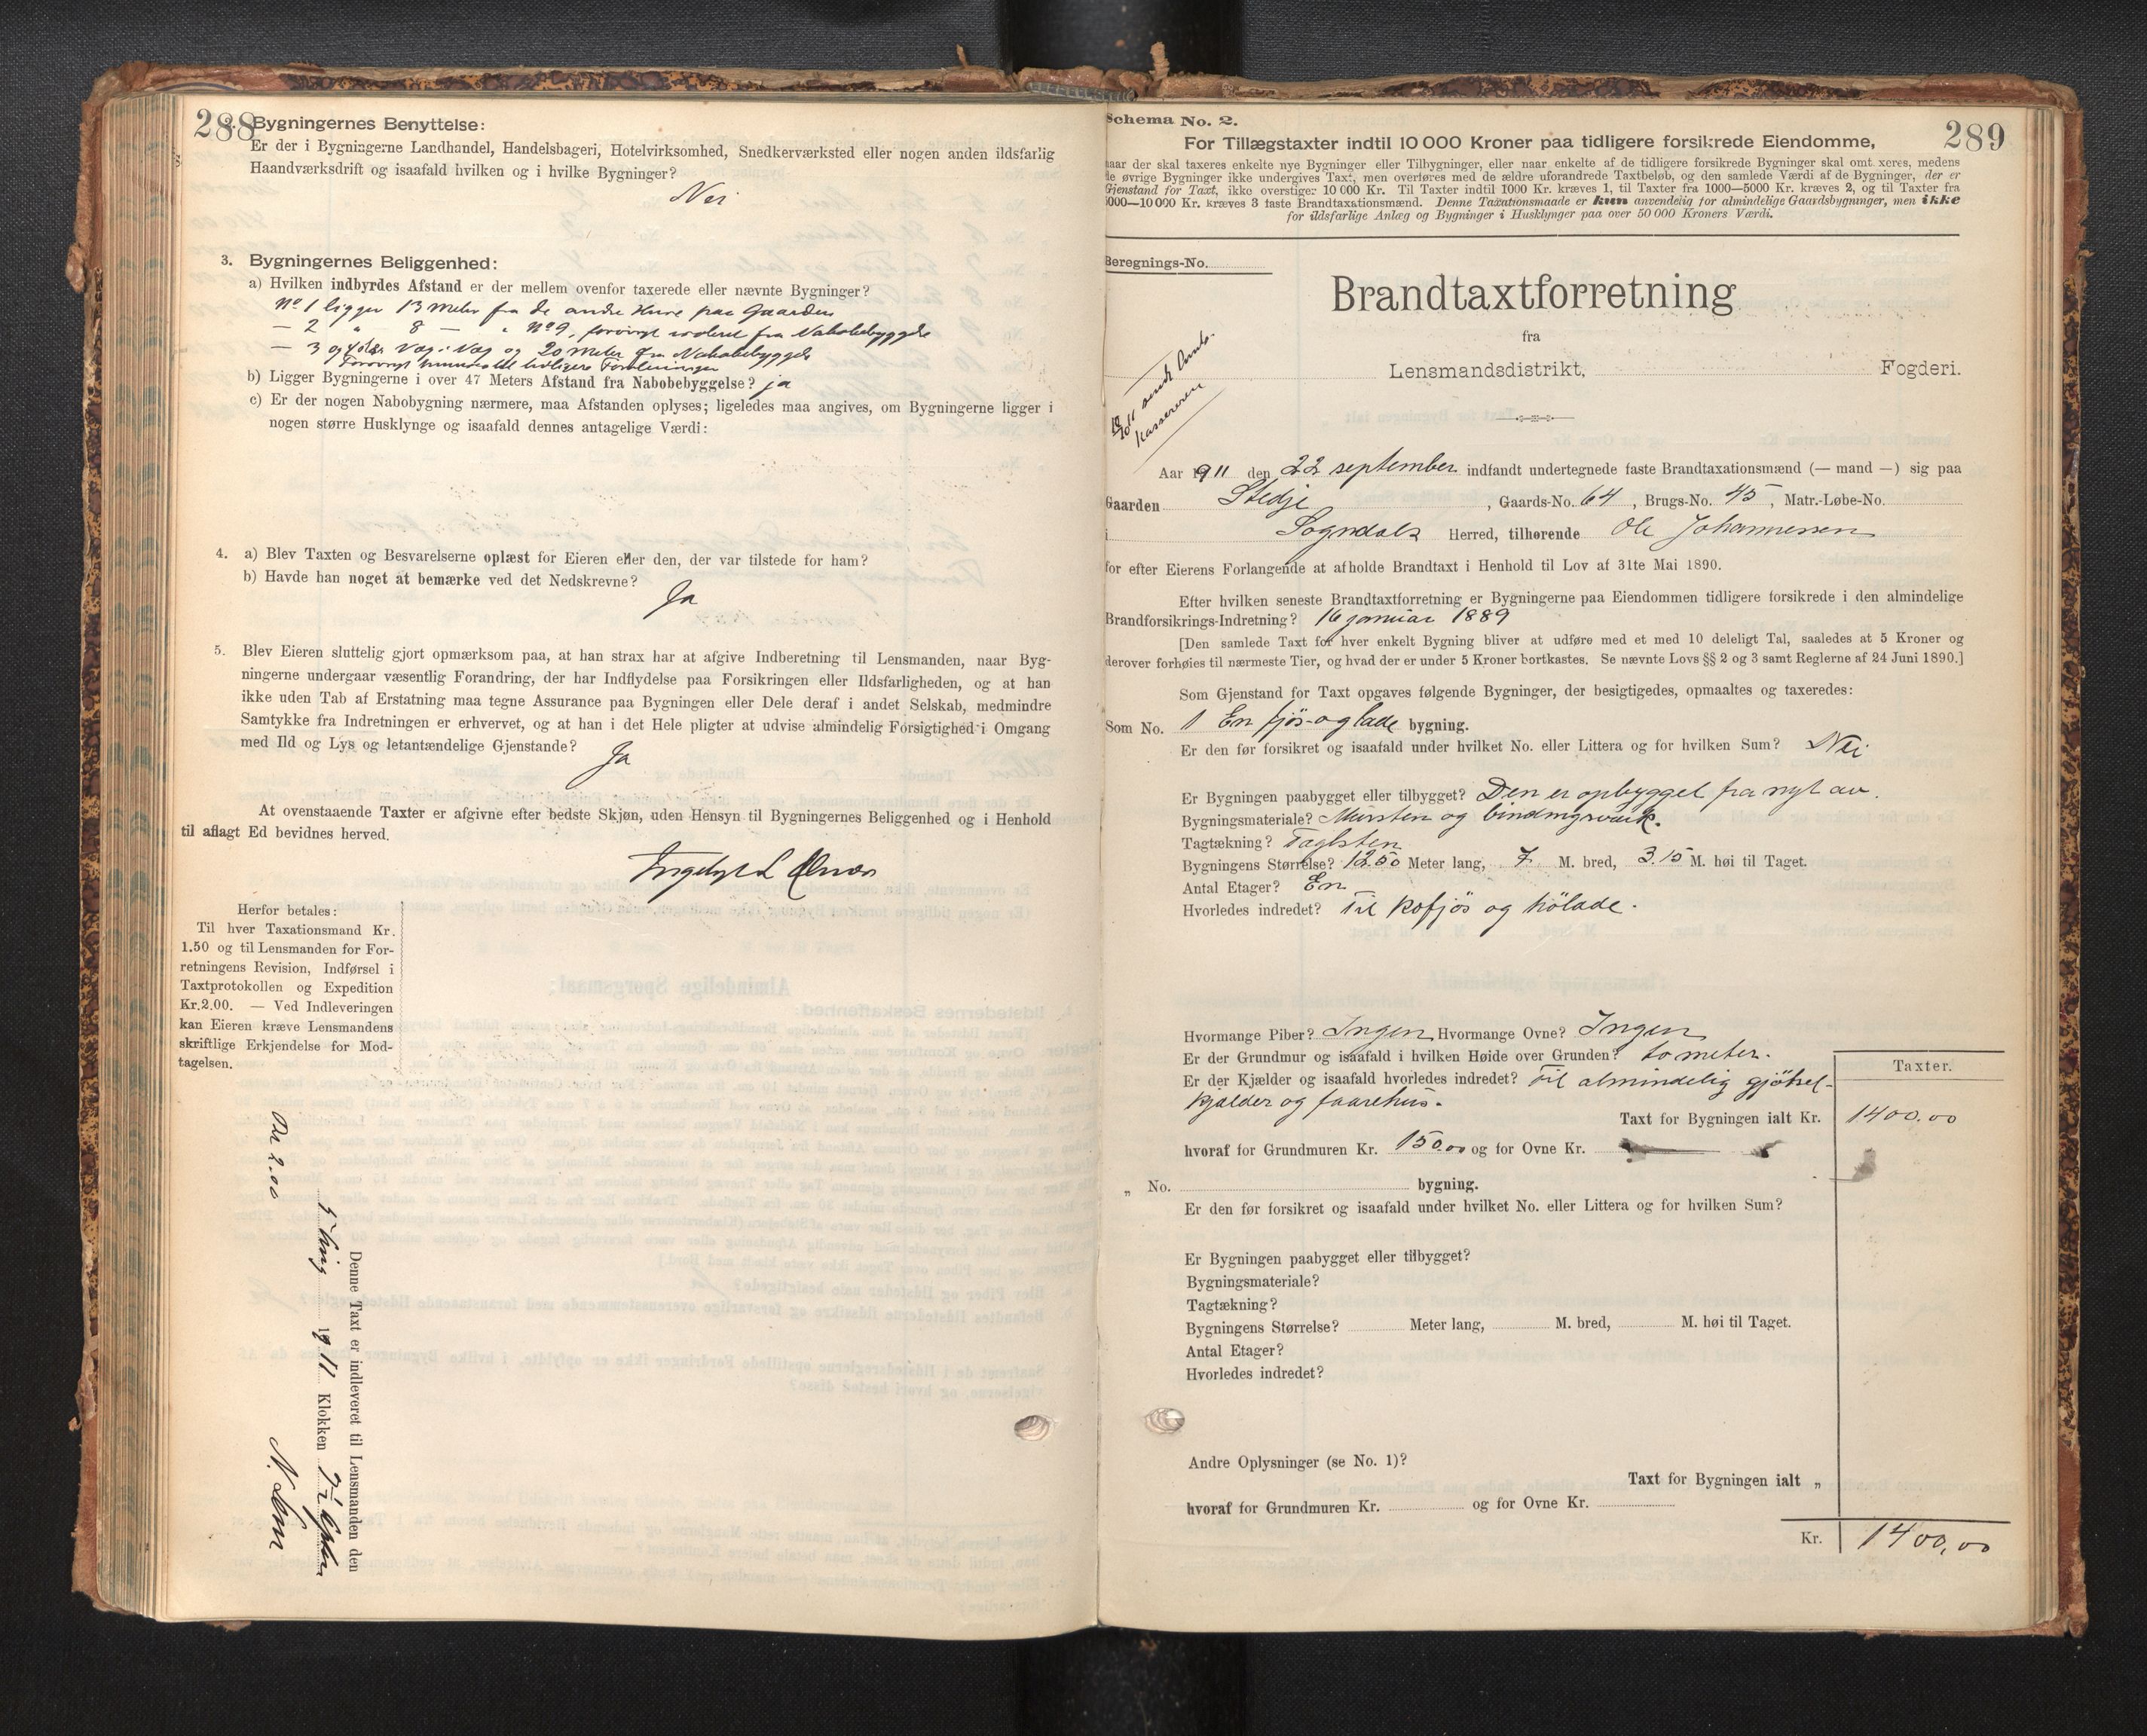 288
2. Bygningernes Benyttelse:
Er der i Bygningerne Landhandel, Handelsbageri, Hotelvirksomhed, Snedkerværksted eller nogen anden ildsfarlig
Haandværksdrift og isaafald hvilken og i hvilke Bygninger?
Nei
3. Bygningernes Beliggenhed:
a) Hvilken indbyrdes Afstand er der mellem ovenfor taxerede eller nævnte Bygninger?
No 1 ligger 13 meter fra de andre Huse paa Gaarden
— 2 " 8 — " No 9, forøvrigt isoleret fra Nabobebyggelse
— 3 og 4 Væg i Væg og 20 meter fra Nabobebyggelse
Forøvrigt til tidligere Forretninger
b) Ligger Bygningerne i over 47 Meters Afstand fra Nabobebyggelse? ja
c) Er der nogen Nabobygning nærmere, maa Afstanden oplyses; ligeledes maa angives, om Bygningerne ligger i
nogen større Husklynge og isaafald dennes antagelige Værdi:
4. a) Blev Taxten og Besvarelserne oplæst for Eieren eller den, der var tilstede for ham?
b) Havde han noget at bemærke ved det Nedskrevne?
Ja
5. Blev Eieren sluttelig gjort opmærksom paa, at han strax har at afgive Indberetning til Lensmanden, naar Byg-
ningerne undergaar væsentlig Forandring, der har Indflydelse paa Forsikringen eller Ildsfarligheden, og at han
ikke uden Tab af Erstatning maa tegne Assurance paa Bygningen eller Dele deraf i andet Selskab, medmindre
Samtykke fra Indretningen er erhvervet, og at han i det Hele pligter at udvise almindelig Forsigtighed i Omgang
med Ild og Lys og letantændelige Gjenstande?
Ja
At ovenstaaende Taxter er afgivne efter bedste Skjøn, uden Hensyn til Bygningernes Beliggenhed og i Henhold
til aflagt Ed bevidnes herved.
Herfor betales:
Til hver Taxationsmand Kr.
1.50 og til Lensmanden for For-
retningens Revision, Indførsel i
Taxtprotokollen og Expedition
Kr. 2.00. — Ved Indleveringen
kan Eieren kræve Lensmandens
skriftlige Erkjendelse for Mod-
tagelsen.
Denne Taxt er indleveret til Lensmanden den
1911 Klokken
2.00
289
Schema No. 2.
For Tillægstaxter indtil 10 000 Kroner paa tidligere forsikrede Eiendomme,
naar der skal taxeres enkelte nye Bygninger eller Tilbygninger, eller naar enkelte af de tidligere forsikrede Bygninger skal omtaxeres, medens
de øvrige Bygninger ikke undergives Taxt, men overføres med de ældre uforandrede Taxtbeløb, og den samlede Værdi af de Bygninger, der er
Gjenstand for Taxt, ikke overstiger 10 000 Kr. Til Taxter indtil 1000 Kr. kræves 1, til Taxter fra 1000—5000 Kr. kræves 2, og til Taxter fra
5000—10 000 Kr. kræves 3 faste Brandtaxationsmænd. Denne Taxationsmaade er kun anvendelig for almindelige Gaardsbygninger, men ikke
for ildsfarlige Anlæg og Bygninger i Husklynger paa over 50 000 Kroners Værdi.
Beregnings-No.
sendt
kassereren
Brandtaxtforretning
fra
Lensmandsdistrikt, Fogderi.
Aar 1911 den 22 september indfandt undertegnede faste Brandtaxationsmænd (— mand —) sig paa
Gaarden Stedje, Gaards-No. 64, Brugs-No. 45, Matr.-Løbe-No.
i Sogndals Herred, tilhørende Ole Johannessen
for efter Eierens Forlangende at afholde Brandtaxt i Henhold til Lov af 31te Mai 1890.
Efter hvilken seneste Brandtaxtforretning er Bygningerne paa Eiendommen tidligere forsikrede i den almindelige
Brandforsikrings-Indretning? 16 januar 1889
[Den samlede Taxt for hver enkelt Bygning bliver at udføre med et med 10 deleligt Tal, saaledes at 5 Kroner og
derover forhøies til nærmeste Tier, og hvad der er under 5 Kroner bortkastes. Se nævnte Lovs §§ 2 og 3 samt Reglerne af 24 Juni 1890.]
Som Gjenstand for Taxt opgaves følgende Bygninger, der besigtigedes, opmaaltes og taxeredes:
Som No. 1 En fjøs- og lade bygning.
Er den før forsikret og isaafald under hvilket No. eller Littera og for hvilken Sum? Nei
Er Bygningen paabygget eller tilbygget? Den er opbygget fra nyt av.
Bygningsmateriale? Mursten og bindingsværk.
Tagtækning? Taglsten
Bygningens Størrelse? 12.50 Meter lang, 7 M. bred, 3.15 M. høi til Taget.
Antal Etager? En
Hvorledes indredet? Til kofjøs og hölade.
Hvormange Piber? Ingen Hvormange Ovne? Ingen
Er der Grundmur og isaafald i hvilken Høide over Grunden? to meter.
Er der Kjælder og isaafald hvorledes indredet? Til almindelig gjödsel-
kjælder og faarehus.
Taxter.
Taxt for Bygningen ialt Kr. 1400.00
hvoraf for Grundmuren Kr. 150.00 og for Ovne Kr.
„ No. bygning.
Er den før forsikret og isaafald under hvilket No. eller Littera og for hvilken Sum?
Er Bygningen paabygget eller tilbygget?
Bygningsmateriale?
Tagtækning?
Bygningens Størrelse? Meter lang, M. bred, M. høi til Taget.
Antal Etager?
Hvorledes indredet?
Andre Oplysninger (se No. 1)?
Taxt for Bygningen ialt „
hvoraf for Grundmuren Kr. og for Ovne Kr.
Kr. 1400,00